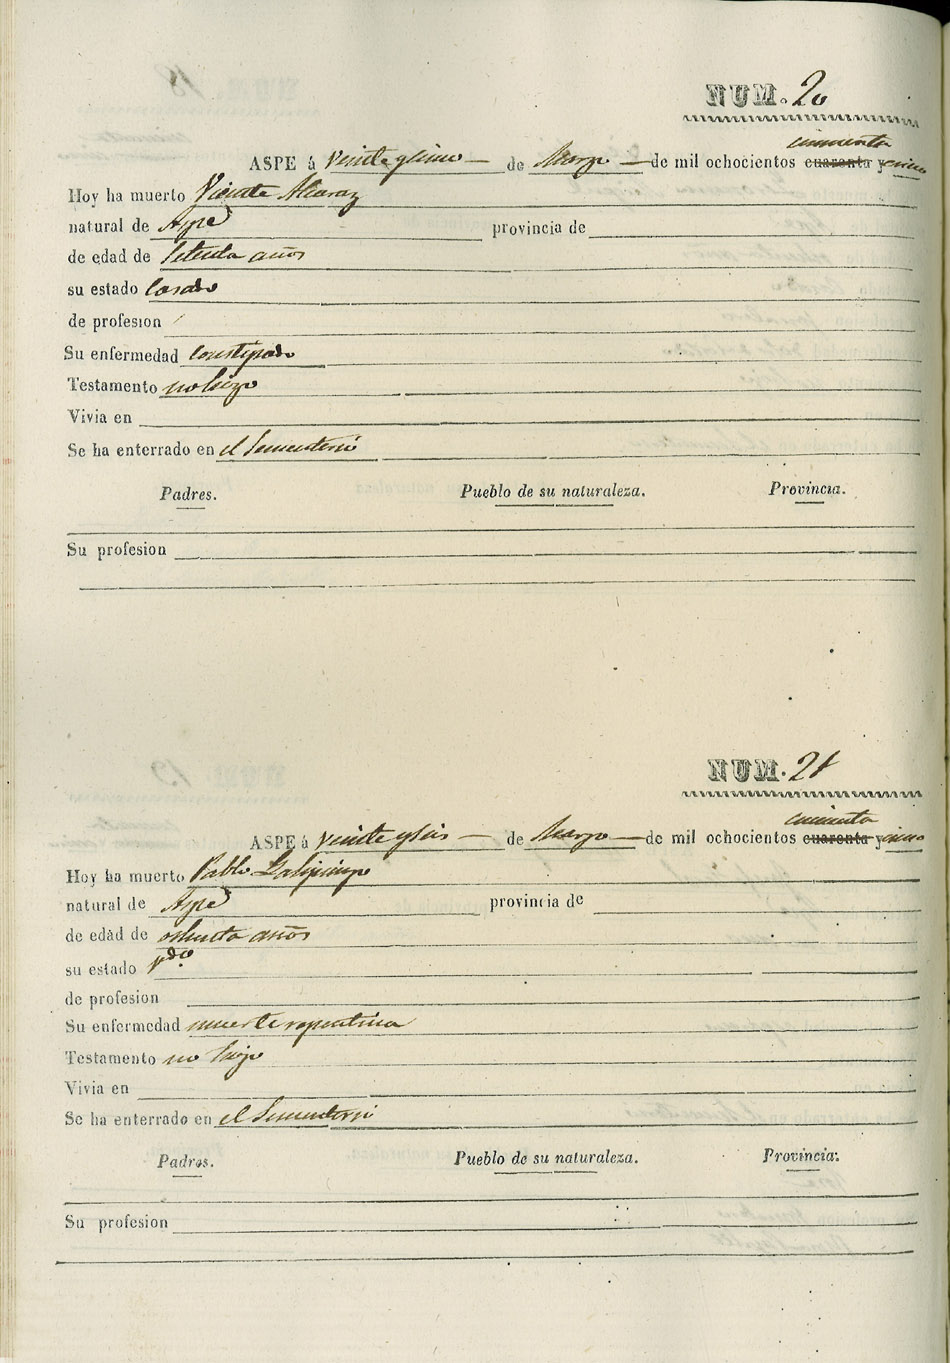 NUM. 20
cincuenta
ASPE á veinte y cinco de Marzo de mil ochocientos cuarenta y cinco
Hoy ha muerto Vicente Alcaraz
natural de Aspe provincia de
de edad de setenta años
su estado Casado
de profesion
Su enfermedad constipado
Testamento no hizo
Vivia en
Se ha enterrado en el Sementerio
Padres. Pueblo de su naturaleza. Provincia.
Su profesion
NUM. 21
cincuenta
ASPE á veinte y seis de Marzo de mil ochocientos cuarenta y cinco
Hoy ha muerto Pablo
natural de Aspe provincia de
de edad de ochenta años
su estado Vdo.
de profesion
Su enfermedad muerte repentina
Testamento no hizo
Vivia en
Se ha enterrado en el Sementerio
Padres. Pueblo de su naturaleza. Provincia.
Su profesion